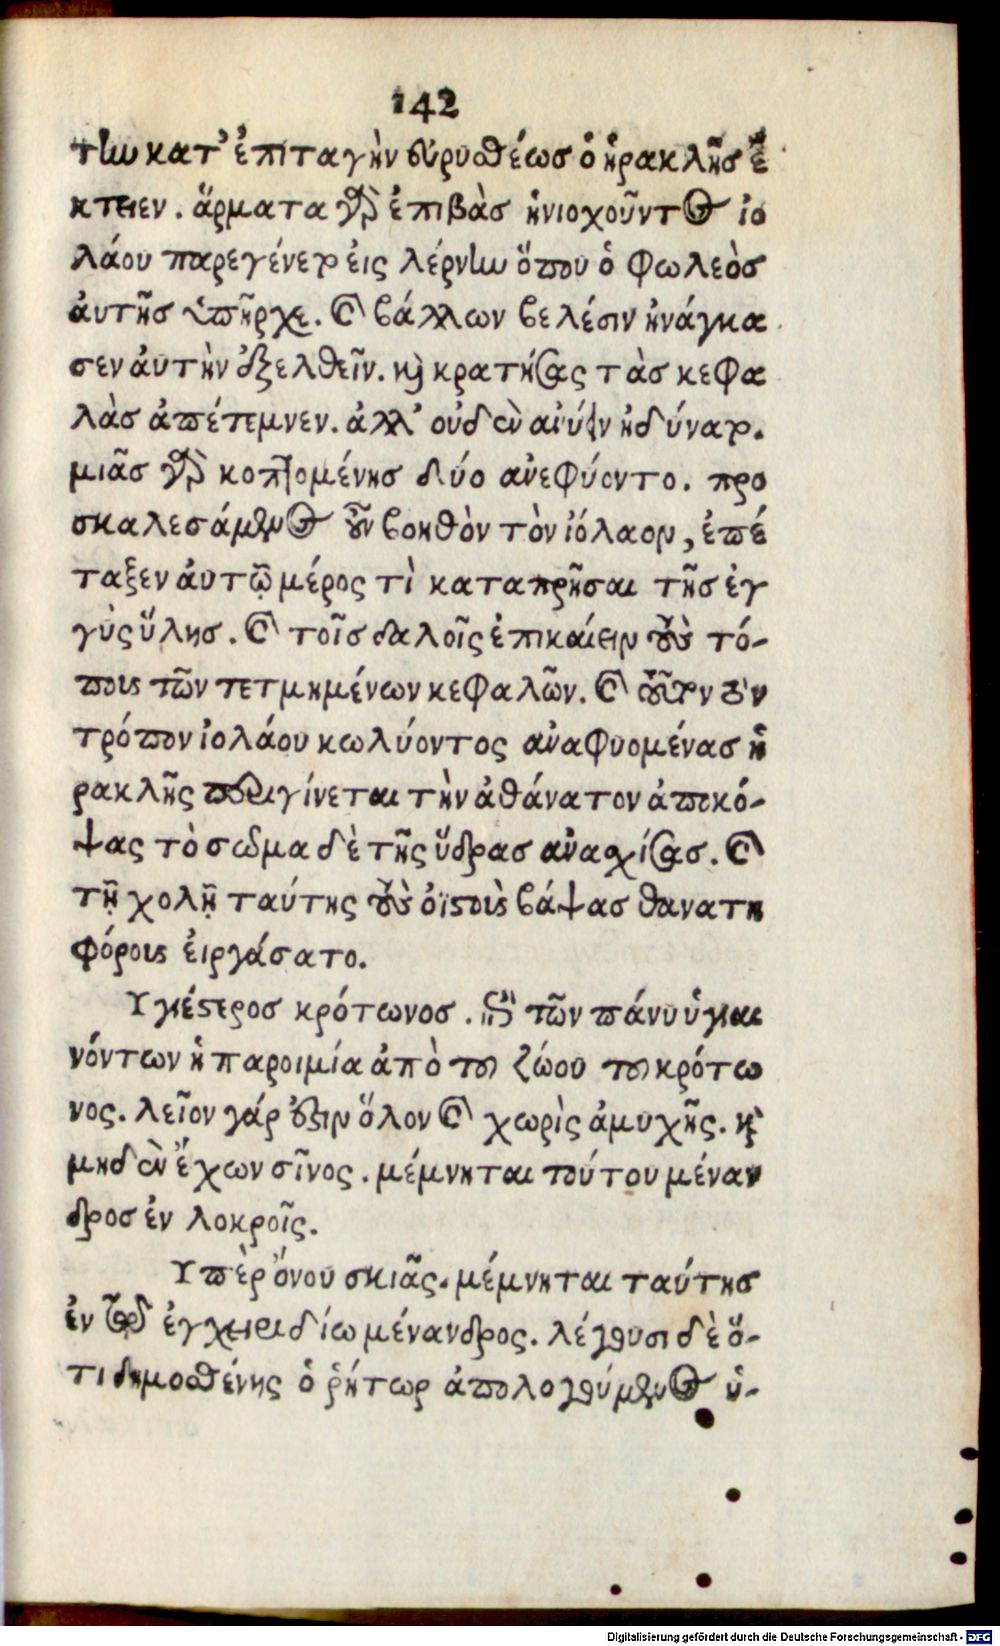 142
την κατ' ἐπιταγὴν εὐρυσθέως ὁ ἡρακλῆσ ἔ
κτεινεν. ἅρματα γὰρ ἐπιβὰσ ἡνιοχοῦντος ἰο
λάου παρεγένετο εἰς λέρνην ὅπου ὁ φωλεὸσ
ἀυτῆσ ὑπῆρχε. καὶ βάλλων βελέσιν ἠνάγκα
σεν ἀυτὴν ἐξελθεῖν. καὶ κρατήσας τὰσ κεφα
λὰσ ἀπέτεμνεν. ἀλλ' οὐδὲν ἀνύειν ἠδύνατο.
μιᾶσ γὰρ κοπτομένησ δύο ἀνεφύοντο. προ
σκαλεσάμενος οὖν βοηθὸν τὸν ἰόλαον, ἐπέ
ταξεν ἀυτῷ μέρος τὶ καταπρῆσαι τῆσ ἐγ
γὺς ὕλησ. καὶ τοῖσ δαλοῖς ἐπικαίειν τοὺς τό-
πους τῶν τετμημένων κεφαλῶν. καὶ τοῦτον τὸν
τρόπον ἰολάου κωλύοντος ἀναφυομένασ ἡ
ρακλῆς περιγίνεται τὴν ἀθάνατον ἀποκό-
ψας τὸ σῶμα δὲ τῆς ὕδρασ ἀναχίσασ. καὶ
τῇ χολῇ ταύτης τοὺς ὀϊστοὺς βάψασ θανατη
φόρους ἐιργάσατο.
Υγιέστεροσ κρότωνοσ. ἐπὶ τῶν πάνυ ὑγιαι
νόντων ἡ παροιμία ἀπὸ τοῦ ζώου τοῦ κρότω
νος. λεῖον γάρ ἐστιν ὅλον καὶ χωρὶς ἀμυχῆς. καὶ
μηδὲν ἔχων σῖνος. μέμνηται τούτου μέναν
δροσ ἐν λοκροῖς.
Υπὲρ ὄνου σκιᾶς. μέμνηται ταύτησ
ἐν τῷ ἐγχειριδίω μένανδρος. λέγουσι δὲ ὅ-
τι δημοσθένης ὁ ῥήτωρ ἀπολογούμενος ὑ-
Digitalisierung gefördert durch die Deutsche Forschungsgemeinschaft - DFG